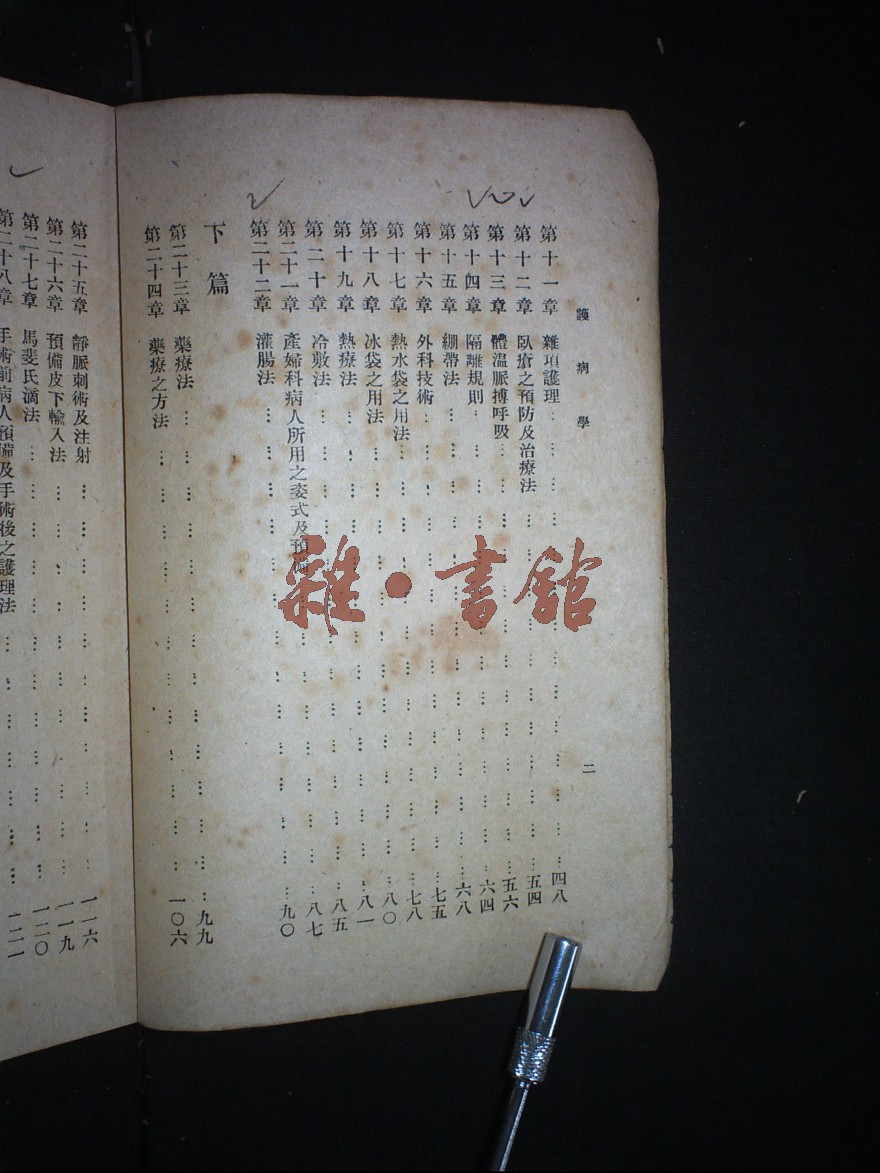 護病學 二
第十一章 雜項護理 … 四八
第十二章 臥瘡之預防及治療法 … 五四
第十三章 體溫脈搏呼吸 … 五六
第十四章 隔離規則 … 六四
第十五章 綳帶法 … 六八
第十六章 外科技術 … 七五
第十七章 熱水袋之用法 … 七八
第十八章 冰袋之用法 … 八〇
第十九章 熱療法 … 八一
第二十章 冷敷法 … 八五
第二十一章 產婦科病人所用之姿式及預備 … 八七
第二十二章 灌腸法 … 九〇
下篇
第二十三章 藥療法 … 九九
第二十四章 藥療之方法 … 一〇六
第二十五章 靜脈刺術及注射 … 一一六
第二十六章 預備皮下輸入法 … 一一九
第二十七章 馬斐氏滴法 … 一二〇
第二十八章 手術前病人預備及手術後之護理法 … 一二一
雜·書館